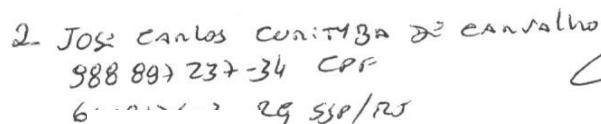 2- José Carlos Curityba de Carvalho
988 897 237-34 CPF
RG SSP/RJ